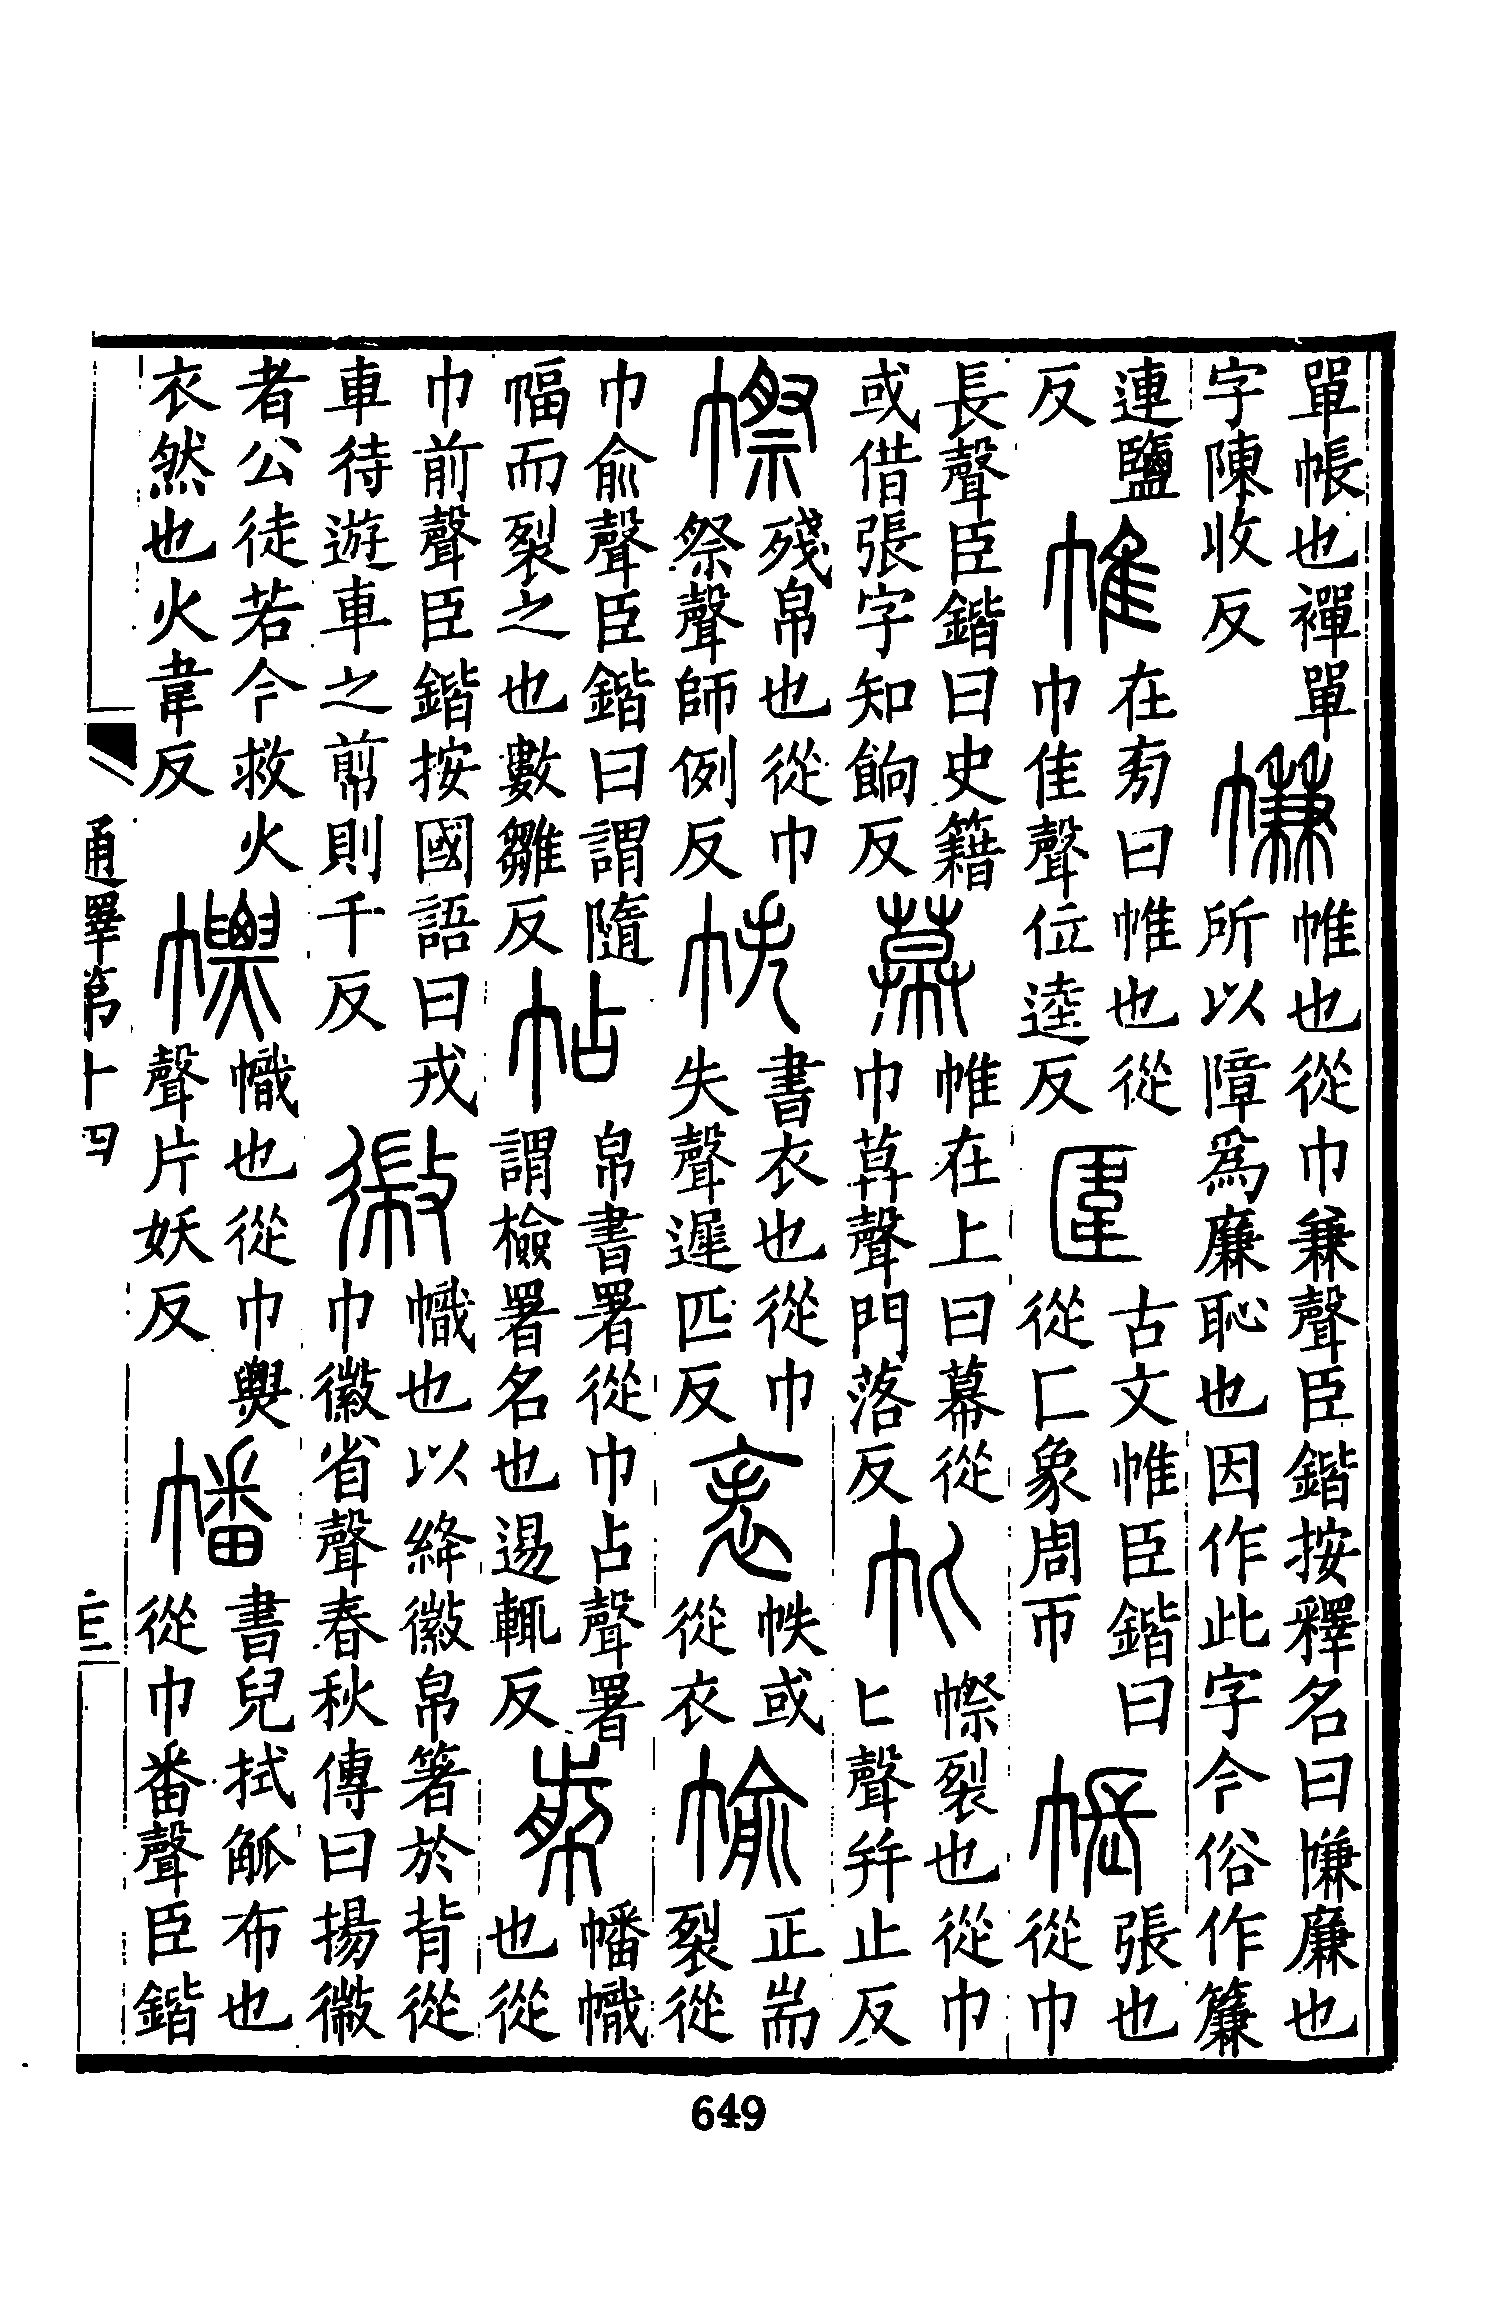 單帳也襌單字陳收反㡘帷也從巾兼聲臣鍇按釋名曰㡘廉也所以障爲廉恥也因作此字今俗作簾
連鹽反帷在㫄曰帷也從巾隹聲位逵反𠥎古文帷臣鍇曰從匚象周帀帳張也從巾
長聲臣鍇曰史籍或借張字知餉反幕帷在上曰幕從巾茻聲門落反㠲㡜裂也從巾匕聲幷止反
㡜殘帛也從巾祭聲師例反帙書衣也從巾失聲遲匹反袠帙或從衣㡏正耑裂從
巾俞聲臣鍇曰謂隨幅而裂之也數雛反帖帛書署從巾占聲署謂檢署名也逷輒反㡐幡幟也從
巾前聲臣鍇按國語曰戎車待遊車之㡐則千反徽幟也以絳徽帛箸於背從巾徽省聲春秋傳曰揚徽
者公徒若今救火衣然也火韋反幖幟也從巾㶾聲片妖反幡書兒拭觚布也從巾番聲臣鍇
通釋第十四 三
649